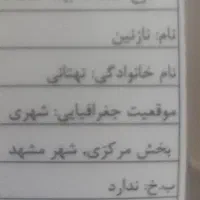 نام: نازنین
نام خانوادگی: تهتانی
موقعیت جغرافیایی: شهری
بخش مرکزی، شهر مشهد
ب.خ: ندارد